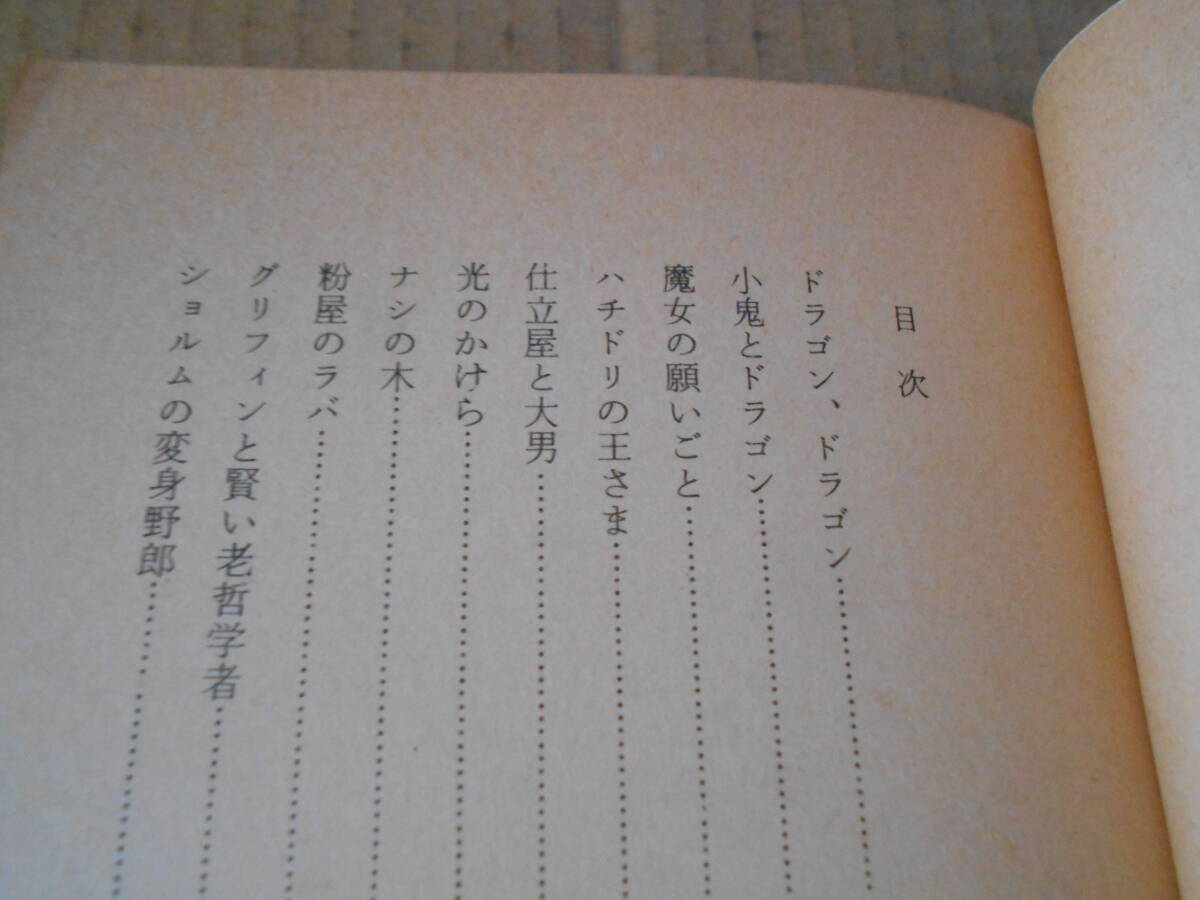 目次
ドラゴン、ドラゴン……………………
小鬼とドラゴン……………………
魔女の願いごと……………………
ハチドリの王さま……………………
仕立屋と大男……………………
光のかけら……………………
ナシの木……………………
粉屋のラバ……………………
グリフィンと賢い老哲学者……………………
ショルムの変身野郎……………………